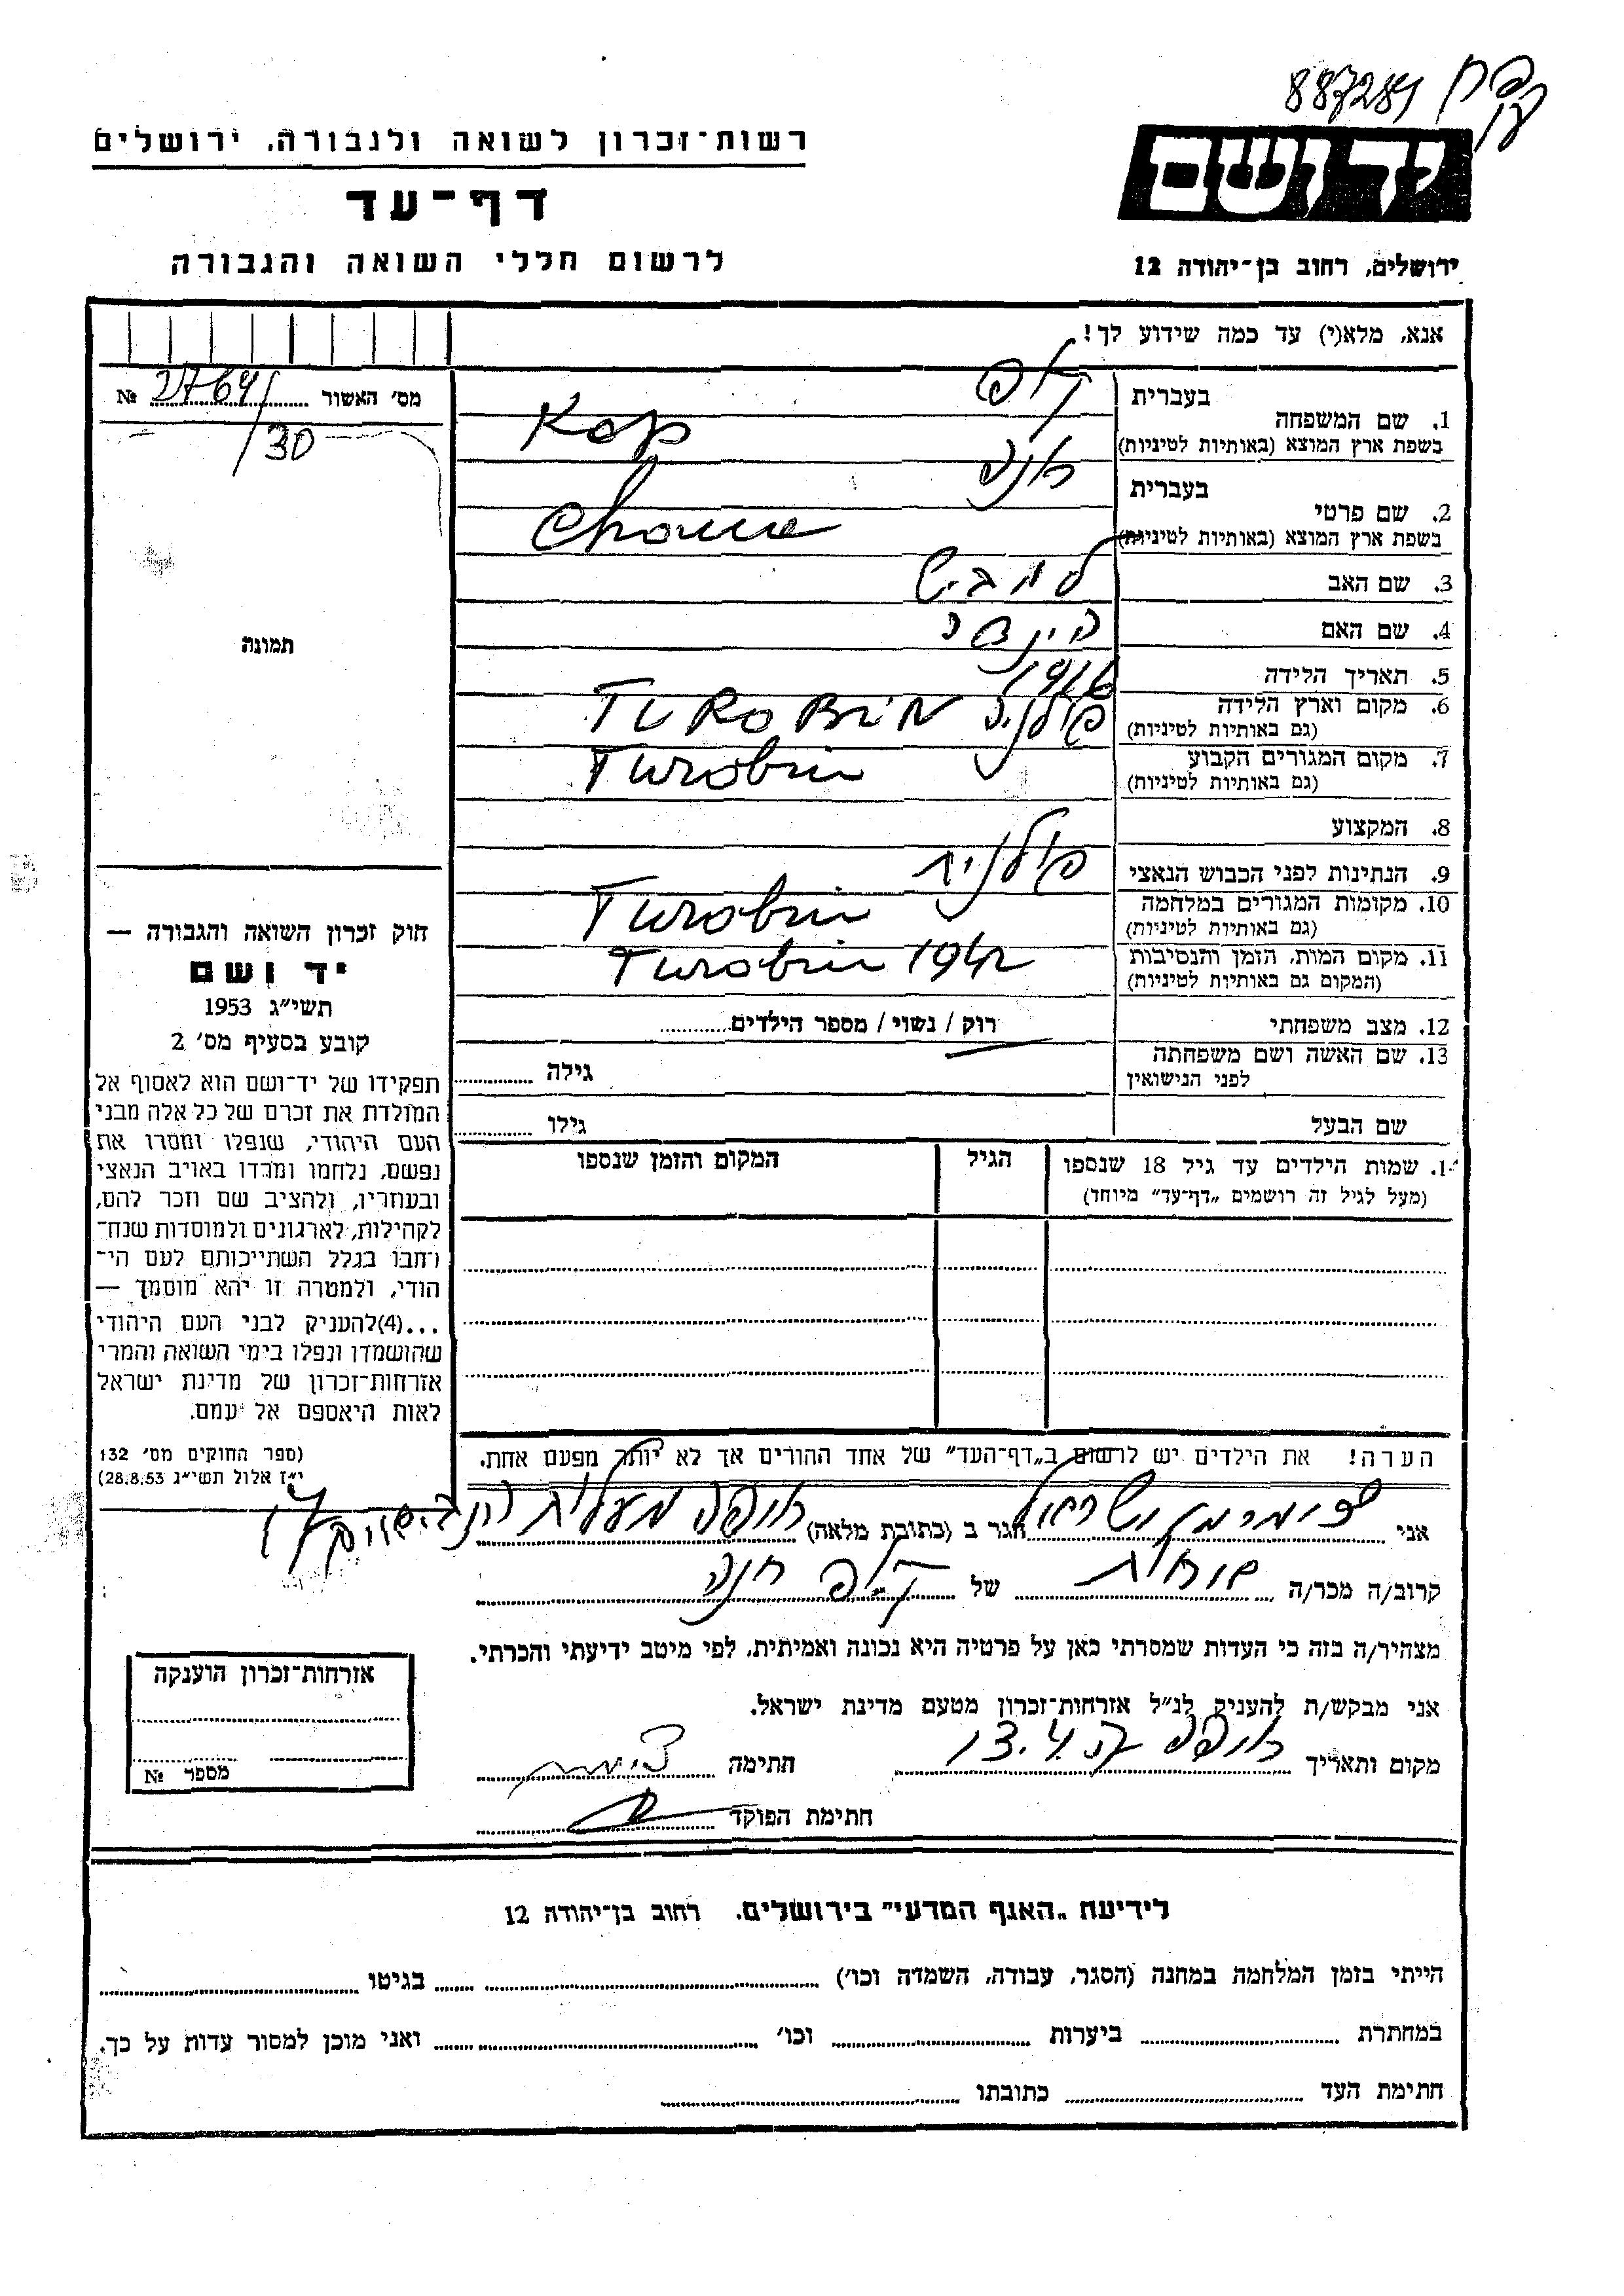 887289
רשות־זכרון לשואה ולגבורה, ירושלים
יד ושם
דף־עד
לרשום חללי השואה והגבורה
ירושלים, רחוב בן־יהודה 12
אנא, מלא(י) עד כמה שידוע לך!
מס׳ האשור 2764/ №
/30
תמונה
בעברית
1. שם המשפחה
בשפת ארץ המוצא (באותיות לטיניות) Kop
בעברית חנה
2. שם פרטי
בשפת ארץ המוצא (באותיות לטיניות)
3. שם האב
4. שם האם
5. תאריך הלידה 1916
6. מקום וארץ הלידה פולניה TUROBIN
(גם באותיות לטיניות)
7. מקום המגורים הקבוע Turobin
(גם באותיות לטיניות)
8. המקצוע
9. הנתינות לפני הכבוש הנאצי פולנית
10. מקומות המגורים במלחמה Turobin
(גם באותיות לטיניות)
11. מקום המות, הזמן והנסיבות Turobin 1942
(המקום גם באותיות לטיניות)
12. מצב משפחתי רוק / נשוי / מספר הילדים
13. שם האשה ושם משפחתה גילה
לפני הנישואין
שם הבעל גילו
1. שמות הילדים עד גיל 18 שנספו הגיל המקום והזמן שנספו
(מעל לגיל זה רושמים „דף־עד” מיוחד)
חוק זכרון השואה והגבורה —
יד ושם
תשי״ג 1953
קובע בסעיף מס׳ 2
תפקידו של יד־ושם הוא לאסוף אל
המולדת את זכרם של כל אלה מבני
העם היהודי, שנפלו ומסרו את
נפשם, נלחמו ומרדו באויב הנאצי
ובעוזריו, ולהציב שם וזכר להם,
לקהילות, לארגונים ולמוסדות שנח־
רחבו בגלל השתייכותם לעם הי־
הודי, ולמטרה זו יהא מוסמך —
...(4)להעניק לבני העם היהודי
שהושמדו ונפלו בימי השואה והמרי
אזרחות־זכרון של מדינת ישראל
לאות היאספם אל עמם.
(ספר החוקים מס׳ 132
י״ז אלול תשי״ג 28.8.53)
הערה! את הילדים יש לרשום ב„דף־העד” של אחד ההורים אך לא יותר מפעם אחת.
אני הגר ב (כתובת מלאה) חיפה
קרוב/ה מכר/ה של חנה
מצהיר/ה בזה כי העדות שמסרתי כאן על פרטיה היא נכונה ואמיתית, לפי מיטב ידיעתי והכרתי.
אני מבקש/ת להעניק לנ״ל אזרחות־זכרון מטעם מדינת ישראל.
מקום ותאריך חיפה 13.4 חתימה
חתימת הפוקד
אזרחות־זכרון הוענקה
מספר №
לידיעת „האגף המדעי” בירושלים, רחוב בן־יהודה 12
הייתי בזמן המלחמה במחנה (הסגר, עבודה, השמדה וכו׳) בגיטו
במחתרת ביערות וכו׳ ואני מוכן למסור עדות על כך.
חתימת העד כתובתו